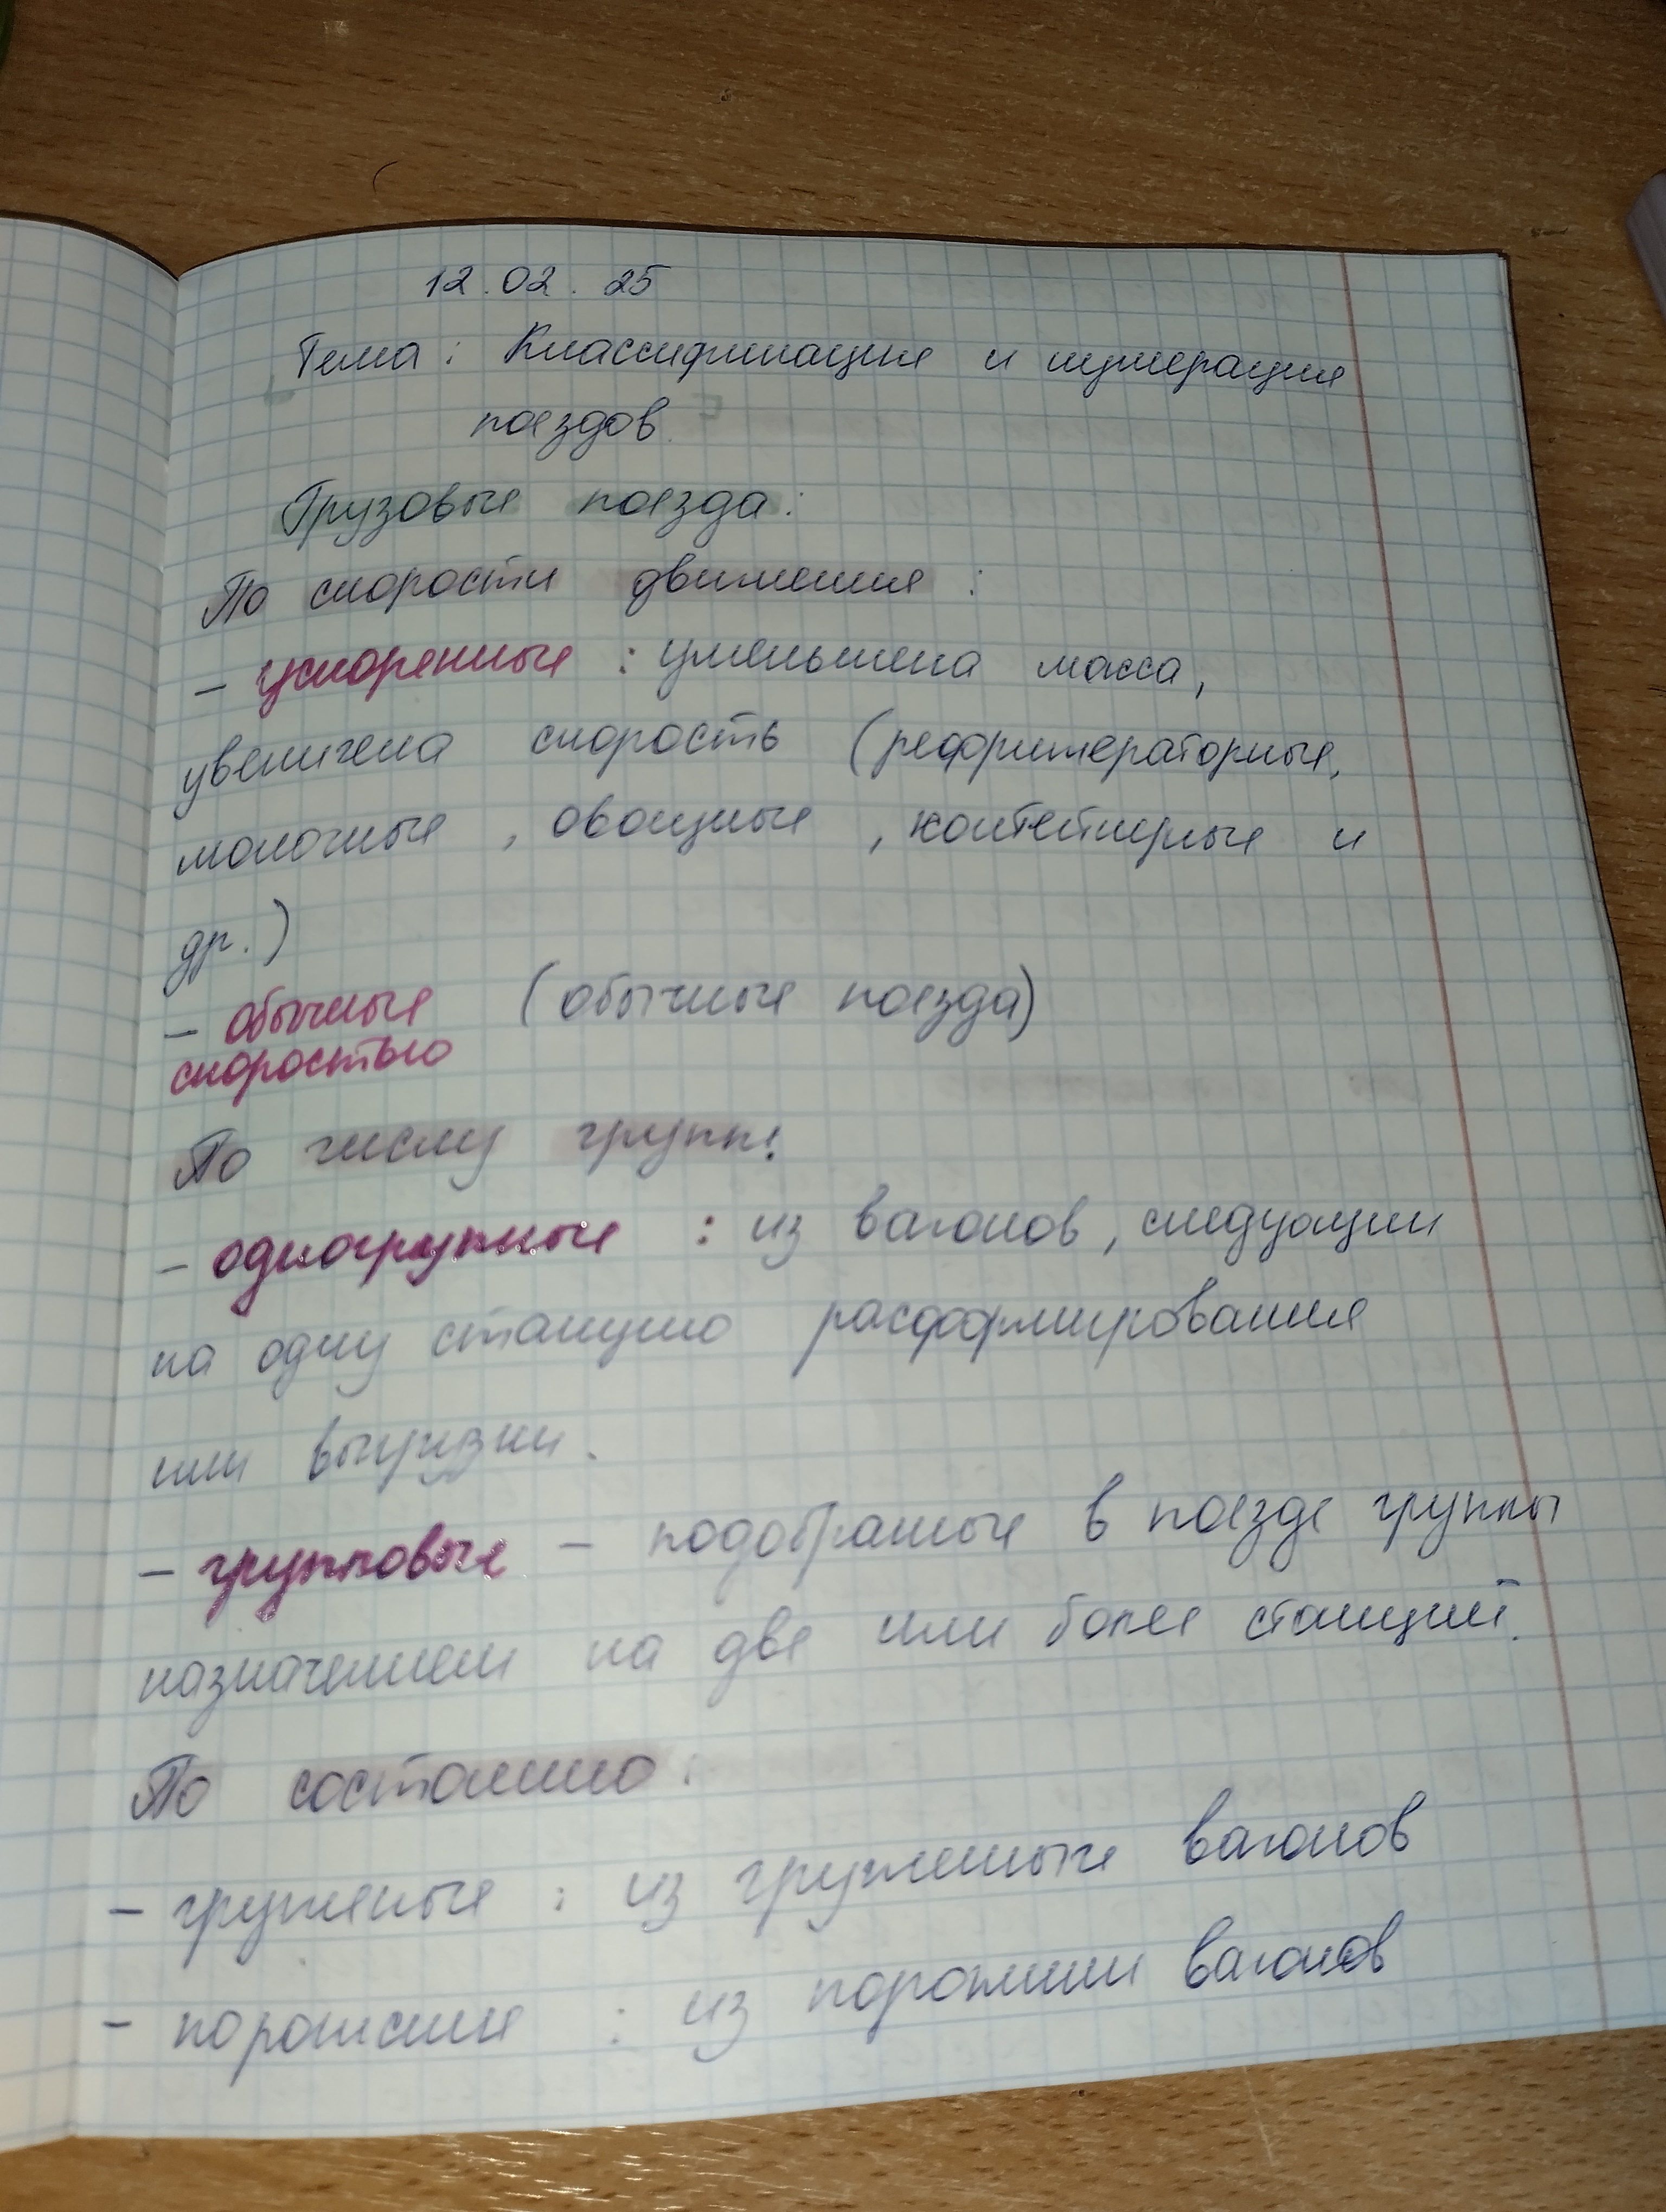 12.02.25
Тема: Классификация и нумерация
поездов.
Грузовые поезда:
По скорости движения:
- ускоренные: уменьшена масса,
увеличена скорость (рефрижераторные,
молочные, овощные, контейнерные и
др.)
- обычные (обычные поезда)
скоростью
По числу групп:
- одногрупные: из вагонов, следующии
на одну станцию расформирования
или выгрузки.
- групповые - подобранные в поезде группы
назначением на две или более станций.
По состоянию:
- груженые: из груженных вагонов
- порожние: из порожнии вагонов